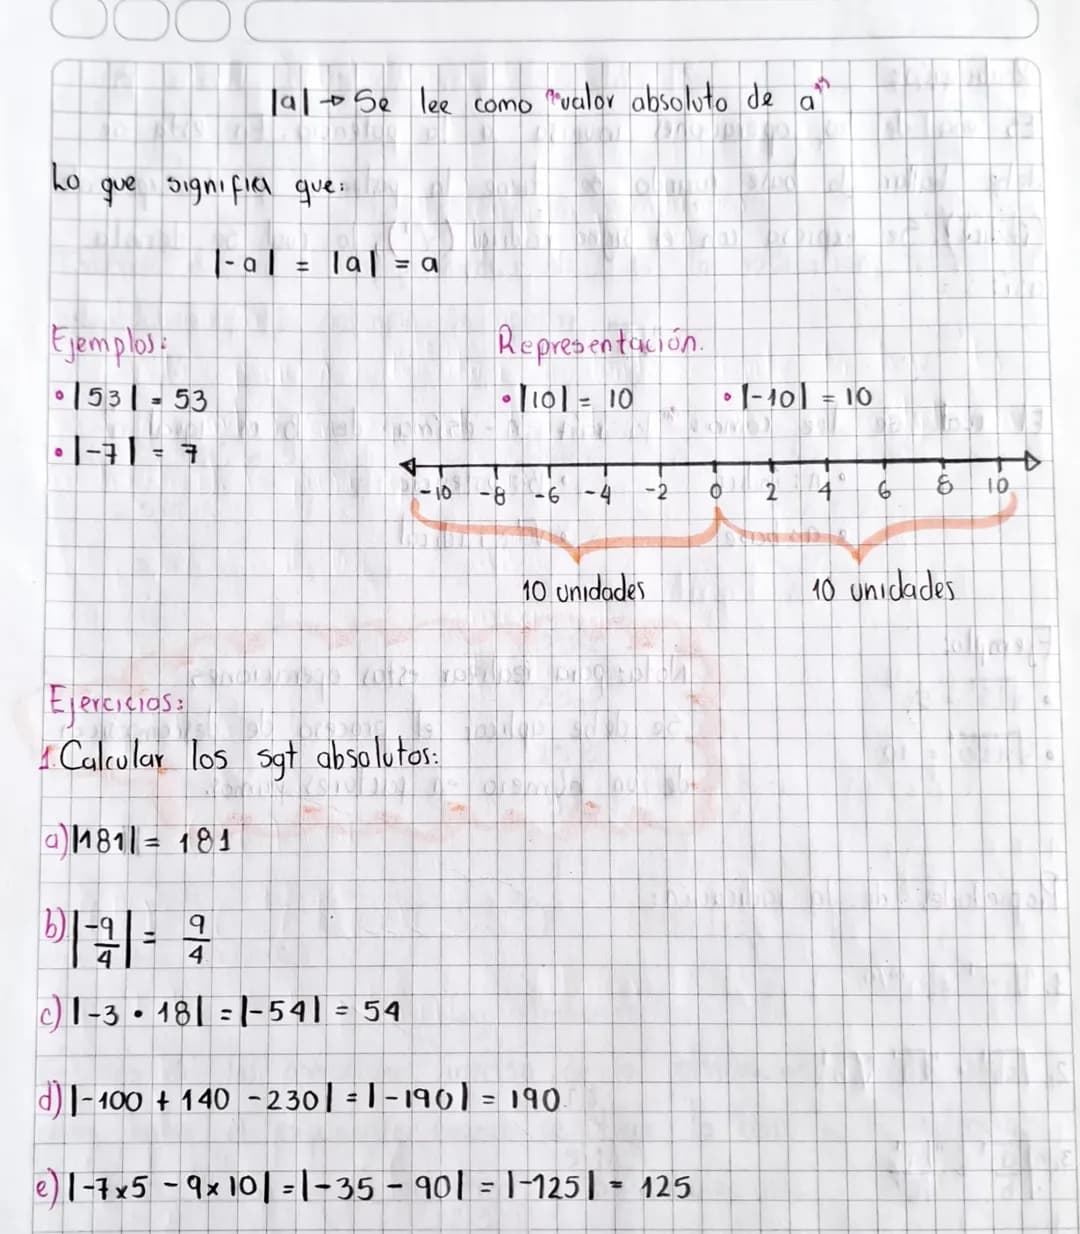 |a| → Se lee como "valor absoluto de a"
Lo que significa que:
|-a| = |a| = a
Ejemplos:
• |53| = 53
• |-7| = 7
Representación.
• |10| = 10 • |-10| = 10
-10 -8 -6 -4 -2 0 2 4 6 8 10
10 unidades 10 unidades
Ejercicios:
1. Calcular los sgt absolutos:
a) |181| = 181
b) |-9/4| = 9/4
c) |-3 • 18| = |-54| = 54
d) |-100 + 140 - 230| = |-190| = 190
e) |-7x5 - 9x10| = |-35 - 90| = |-125| = 125